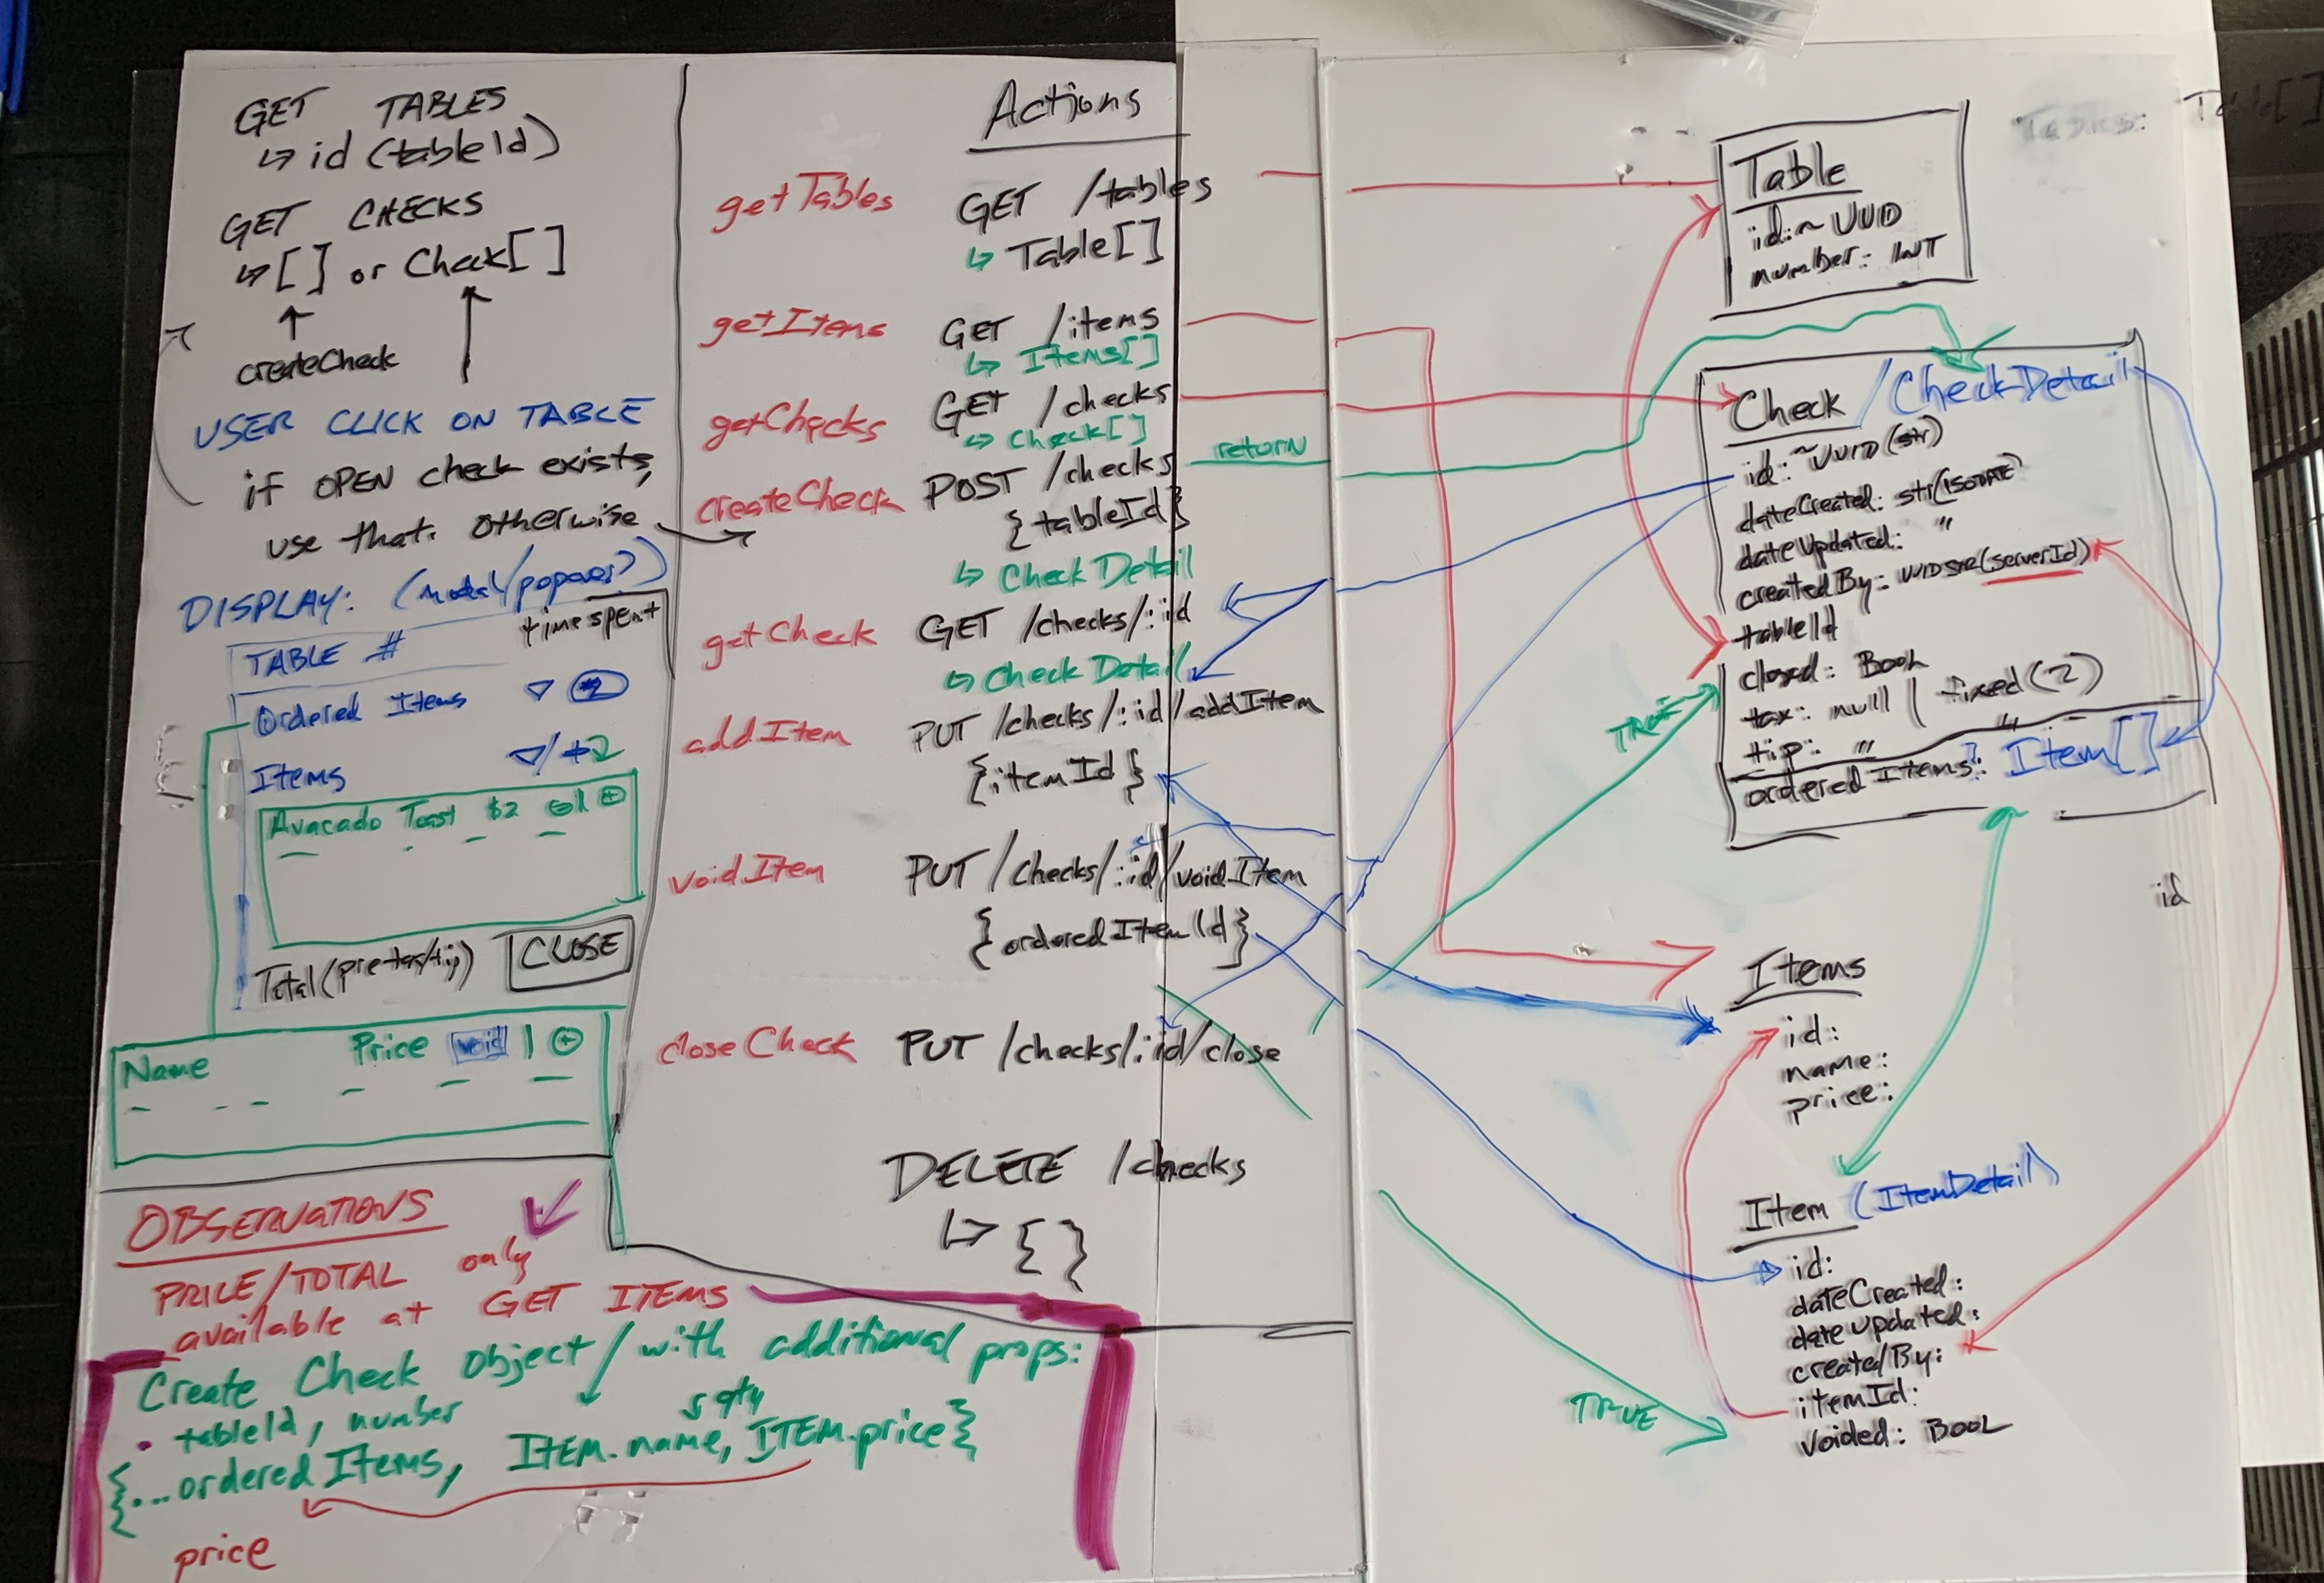 GET TABLES
↳ id (tableId)
GET CHECKS
↳ [] or Check[]
createCheck
USER CLICK ON TABLE
if OPEN check exists,
use that. otherwise
DISPLAY: (modal/popover?)
time spent
TABLE #
Ordered Items
Items
Avacado Toast $2
Total (pretax/tip) CLOSE
Name Price void | +
OBSERVATIONS
PRICE/TOTAL only
available at GET ITEMS
Create Check Object / with additional props:
• tableId, number
qty
{...ordered Items, ITEM.name, ITEM.price}
price
Actions
getTables GET /tables
↳ Table[]
getItems GET /items
↳ Items[]
getChecks GET /checks
↳ Check[]
return
createCheck POST /checks
{tableId}
↳ CheckDetail
getCheck GET /checks/:id
↳ Check Detail
addItem PUT /checks/:id/addItem
{itemId}
voidItem PUT /checks/:id/voidItem
{orderedItemId}
closeCheck PUT /checks/:id/close
DELETE /checks
↳ {}
Tables: Table[]
Table
id: ~ UUID
number: INT
Check / CheckDetail
id: ~UUID (str)
dateCreated: str(ISODATE)
dateUpdated: "
createdBy: UUIDSTR(serverId)
tableId
closed: BOOL
tax: null | fixed(2)
tip: " "
ordered Items: Item[]
TRUE
id
Items
id:
name:
price:
Item (ItemDetail)
id:
dateCreated:
dateUpdated:
createdBy:
itemId:
voided: BOOL
TRUE